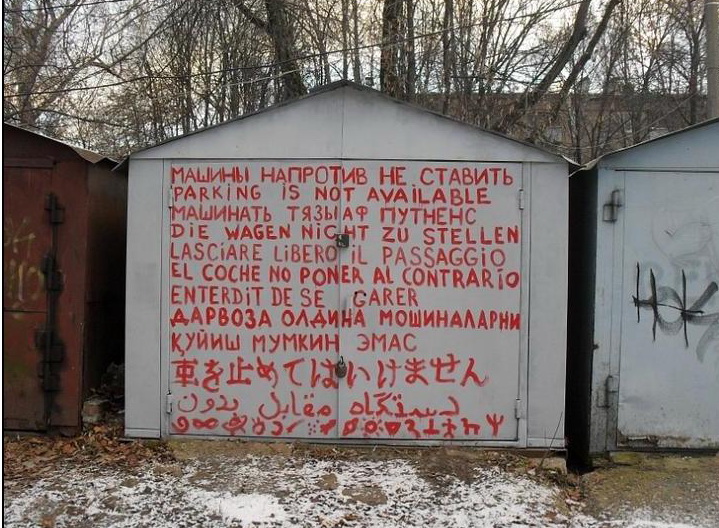 МАШИНЫ НАПРОТИВ НЕ СТАВИТЬ
PARKING IS NOT AVAILABLE
МАШИНАТЬ ТЯЗЫАФ ПУТНЕНС
DIE WAGEN NICHT ZU STELLEN
LASCIARE LIBERO IL PASSAGGIO
EL COCHE NO PONER AL CONTRARIO
ENTERDIT DE SE GARER
ДАРВОЗА ОЛДИНА МОШИНАЛАРНИ
ҚУЙИШ МУМКИН ЭМАС
車を止めてはいけません
دستگاه مقابل بدون